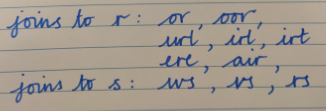 joins to r: or, oor,
url, irl, irt
ere, air,
joins to s: ws, vs, rs